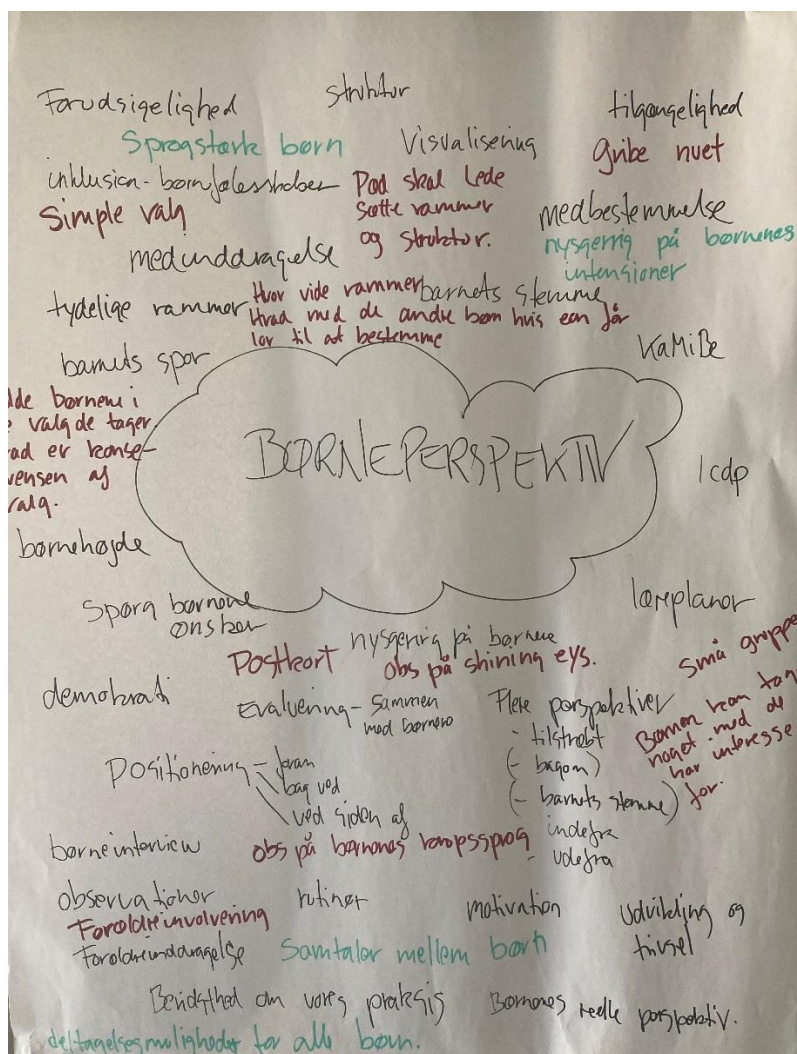 Forudsigelighed
struktur
tilgængelighed
Sprogstærk børn
Visualisering
Gribe nuet
inklusion - børnefælesskaber
Pæd skal lede
Sætte rammer
og struktur.
Simple valg
medbestemmelse
nysgerrig på børnenes
intensioner
medinddragelse
tydelige rammer
Hvor vide rammer
barnets stemme
Hvad med de andre børn hvis een får
lov til at bestemme
KaMiBe
barnets spor
lde børnene i
valg de tager.
ad er konse-
vensen af
valg.
BØRNEPERSPEKTIV
Icdp
børnehøjde
Spørg børnene
ønsker
læreplaner
nysgerrig på børnene
Postkort
obs på shining eys.
små gruppe
demokrati
Evaluering - sammen
med børnene
Flere perspektiver
- tilstræbt
(- bagom)
(- barnets stemme)
indefra
- udefra
Børnene kan tag
noget med de
har interesse
for.
Positionering - foran
bag ved
ved siden af
børneinterview
obs på børnenes kropssprog
observationer
rutiner
motivation
Udvikling og
trivsel
Forældreinvolvering
Forældreinddragelse
Samtaler mellem børn
Bevidsthed om vores praksis
Børnenes reelle perspektiv.
deltagelsesmuligheder for alle børn.